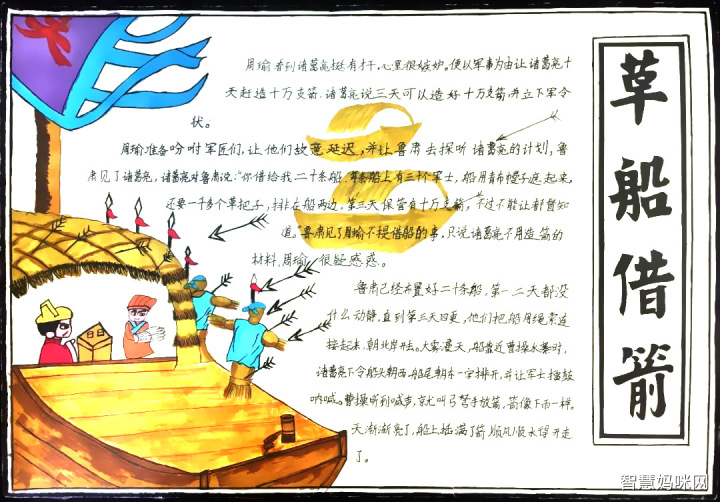 草船借箭
周瑜看到诸葛亮挺有才干,心里很嫉妒。便以军事为由让诸葛亮十
天赶造十万支箭,诸葛亮说三天可以造好十万支箭,并立下军令
状。
周瑜准备吩咐军匠们,让他们故意延迟,并让鲁肃去探听诸葛亮的计划,鲁
肃见了诸葛亮,诸葛亮对鲁肃说:“你借给我二十条船,每条船上有三十个军士,船用青布幔子遮起来,
还要一千多个草把子,排在船两边,第三天保管有十万支箭,不过不能让都督知
道。”鲁肃见了周瑜不提借船的事,只说诸葛亮不用造箭的
材料,周瑜很疑惑惑。
鲁肃已经布置好二十条船,第一二天都没
什么动静,直到第三天四更,他们把船用绳索连
接起来,朝北岸开去。大雾漫天,船靠近曹操水寨时,
诸葛亮下令船头朝西,船尾朝东一字排开,并让军士擂鼓
呐喊。曹操听到喊声,就叫弓弩手放箭,箭像下雨一样。
天渐渐亮了,船上插满了箭,顺风顺水得开走
了。
智慧妈咪网